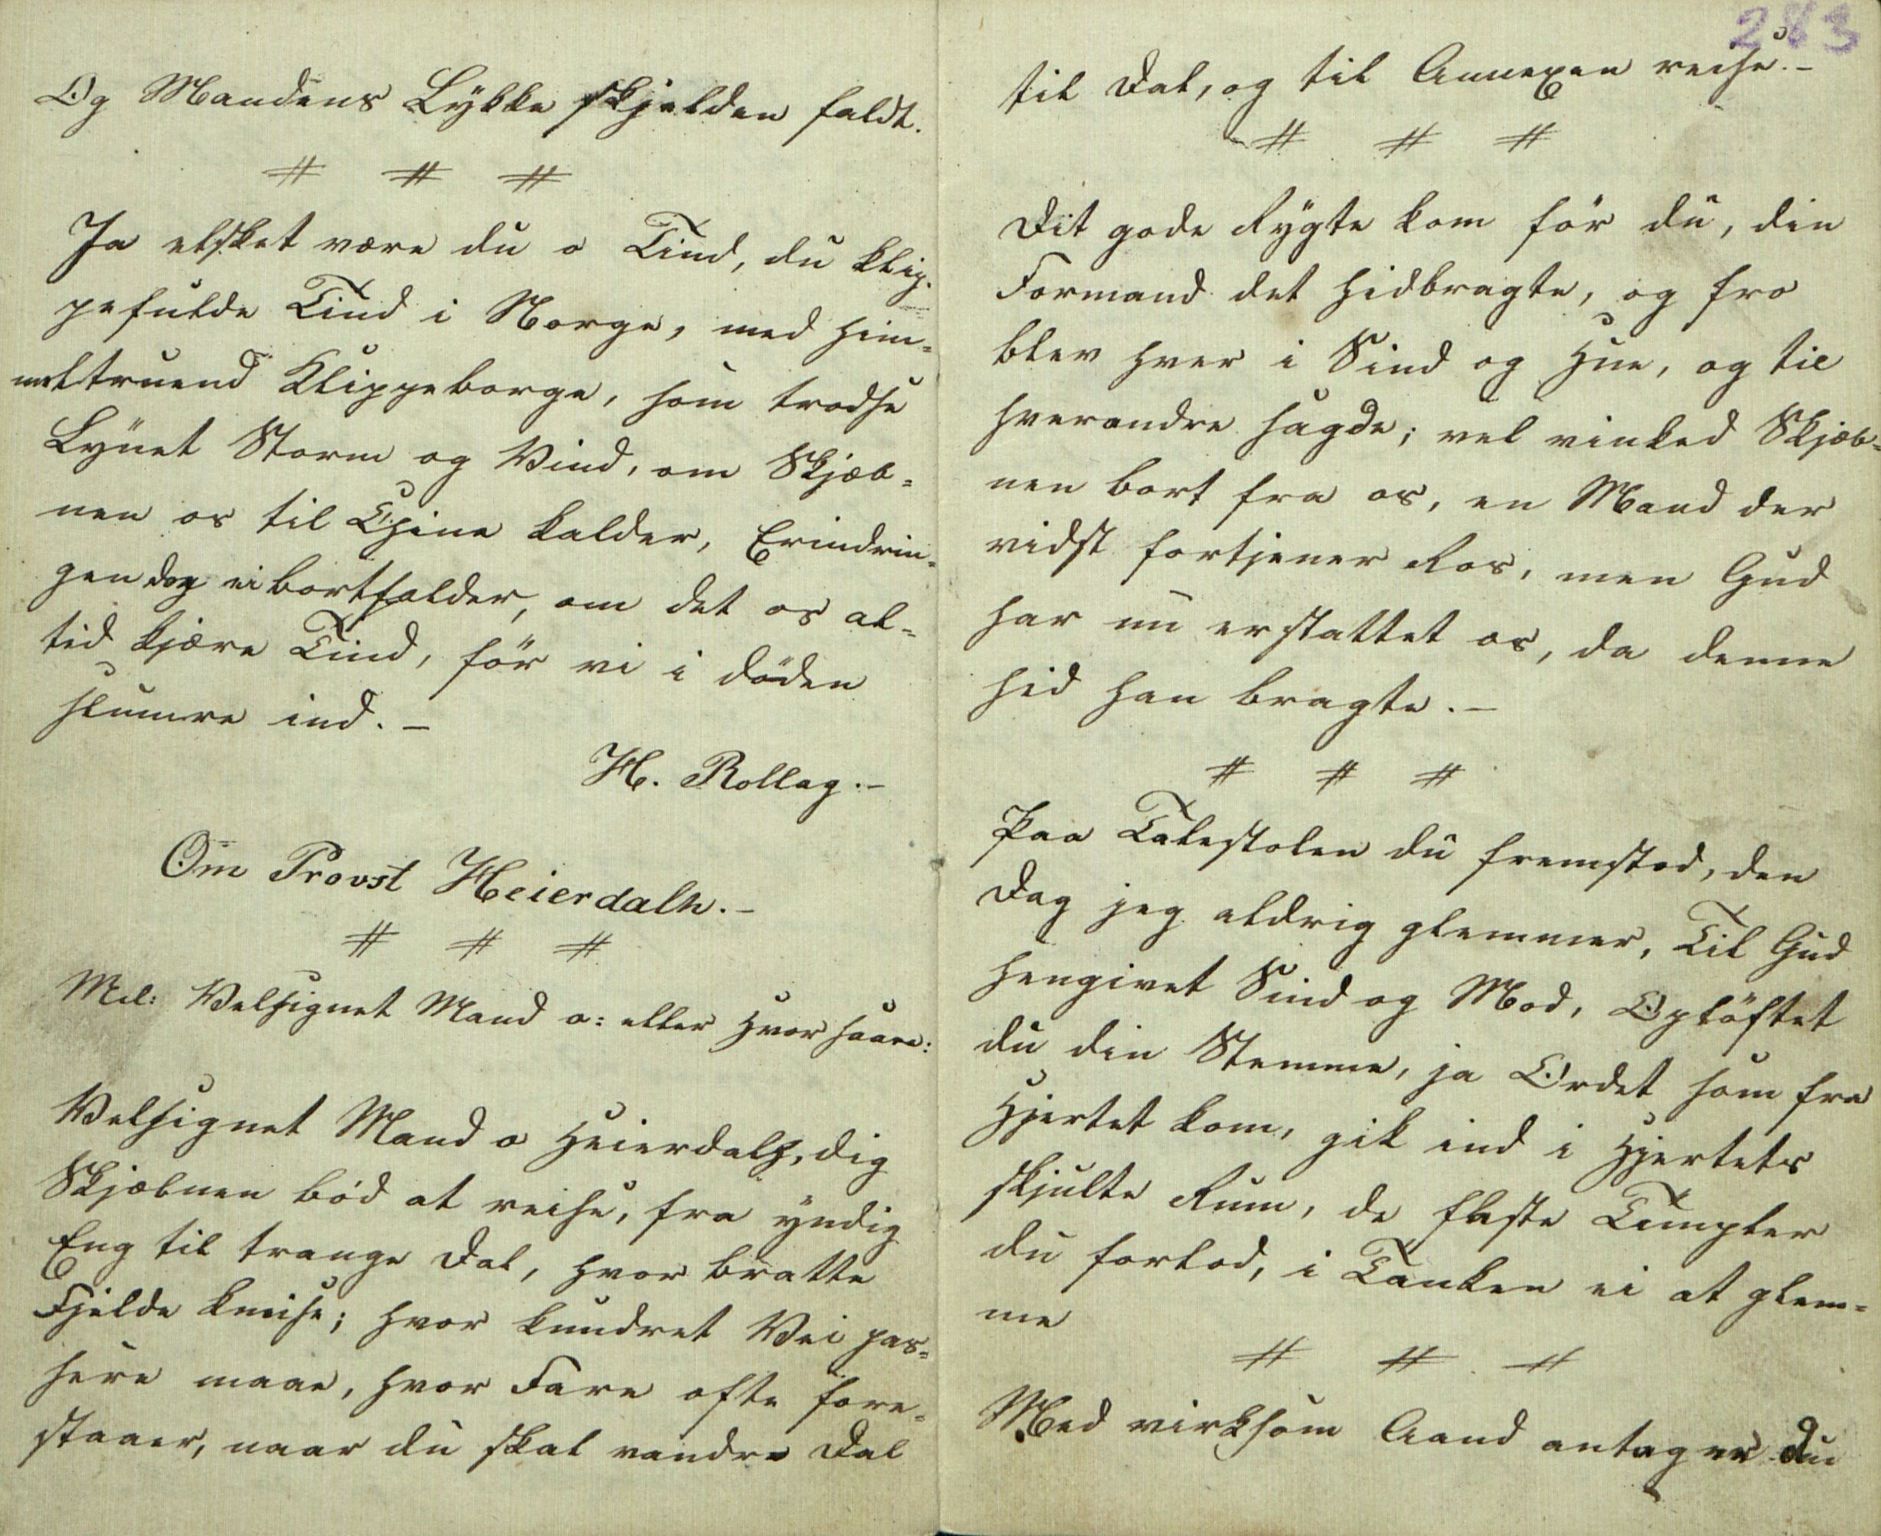 Og Mandens Lykke skjelden faldt.
# # #
Ja elsket være du o Tind, du klip-
pefulde Tind i Norge, med him-
meltruend Klippeborge, som trodse
Lynet Storm og Vind, om Skjæb-
nen os til Chine kalder, Erindrin-
gen dog ei bortfalder, om det os al-
tid kjære Tind, før vi i døden
slumre ind. –
H. Rollag. –
Om Provst Heierdalh. –
# # #
Mel: Velsignet Mand o: eller Hvor saare:
Velsignet Mand o Heierdalh, dig
Skjæbnen bød at reise, fra yndig
Eng til trange Dal, hvor bratte
Fjelde kneise; hvor kundret Vei pas-
sere maae, hvor Fare ofte fore-
staaer, naar du skal vandre Dal
283
til Dal, og til Annexen reise. –
# # #
Dit gode Rygte kom før du, din
Formand det hidbragte, og fro
blev hver i Sind og Hue, og til
hverandre sagde; vel vinked Skjæb-
nen bort fra os, en Mand der
vidst fortjener Ros, men Gud
har nu erstattet os, da denne
hid han bragte. –
# # #
Paa Talestolen du fremstod, den
Dag jeg aldrig glemmer, Til Gud
hengivet Sind og Mod, Opløftet
du din Stemme, ja Ordet som fra
Hjertet kom, gik ind i Hjertets
skjulte Rum, de fleste Templer
du forlod, i Tanken ei at glem-
me
# # #
Med virksom Aand antager du